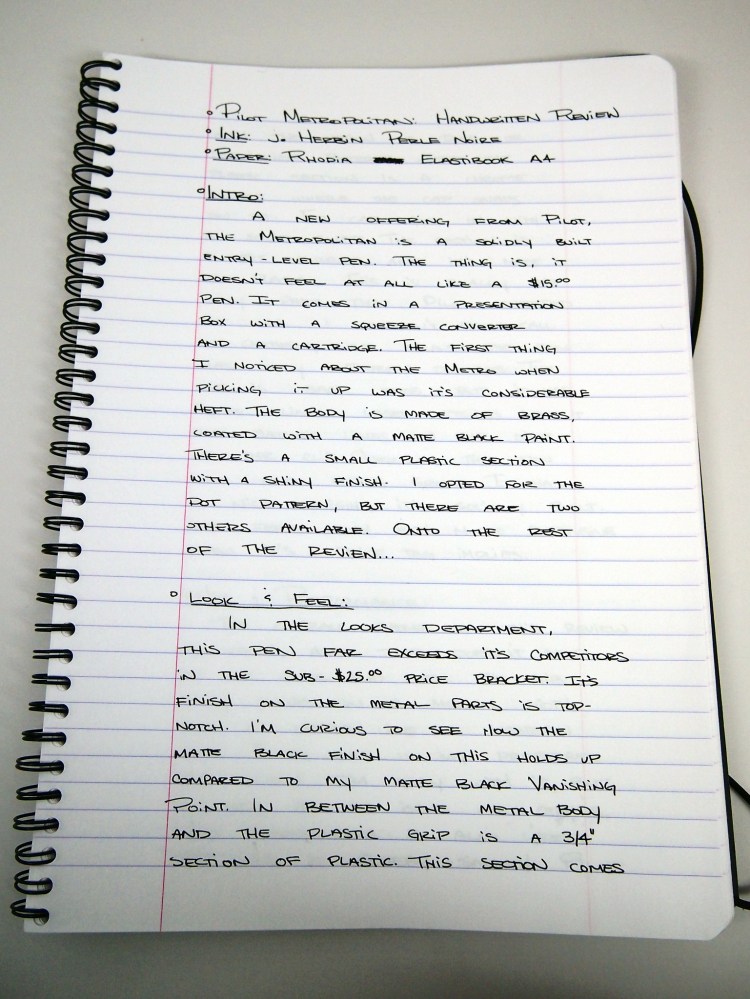 ° Pilot Metropolitan: Handwritten Review
° Ink: J. Herbin Perle Noire
° Paper: Rhodia Elastibook A4
° Intro:
A new offering from Pilot,
the Metropolitan is a solidly built
entry-level pen. The thing is, it
doesn't feel at all like a $15.00
pen. It comes in a presentation
box with a squeeze converter
and a cartridge. The first thing
I noticed about the Metro when
picking it up was it's considerable
heft. The body is made of brass,
coated with a matte black paint.
There's a small plastic section
with a shiny finish. I opted for the
dot pattern, but there are two
others available. Onto the rest
of the review...
° Look & Feel:
In the looks department,
this pen far exceeds it's competitors
in the sub-$25.00 price bracket. It's
finish on the metal parts is top-
notch. I'm curious to see how the
matte black finish on this holds up
compared to my matte black Vanishing
Point. In between the metal body
and the plastic grip is a 3/4"
section of plastic. This section comes